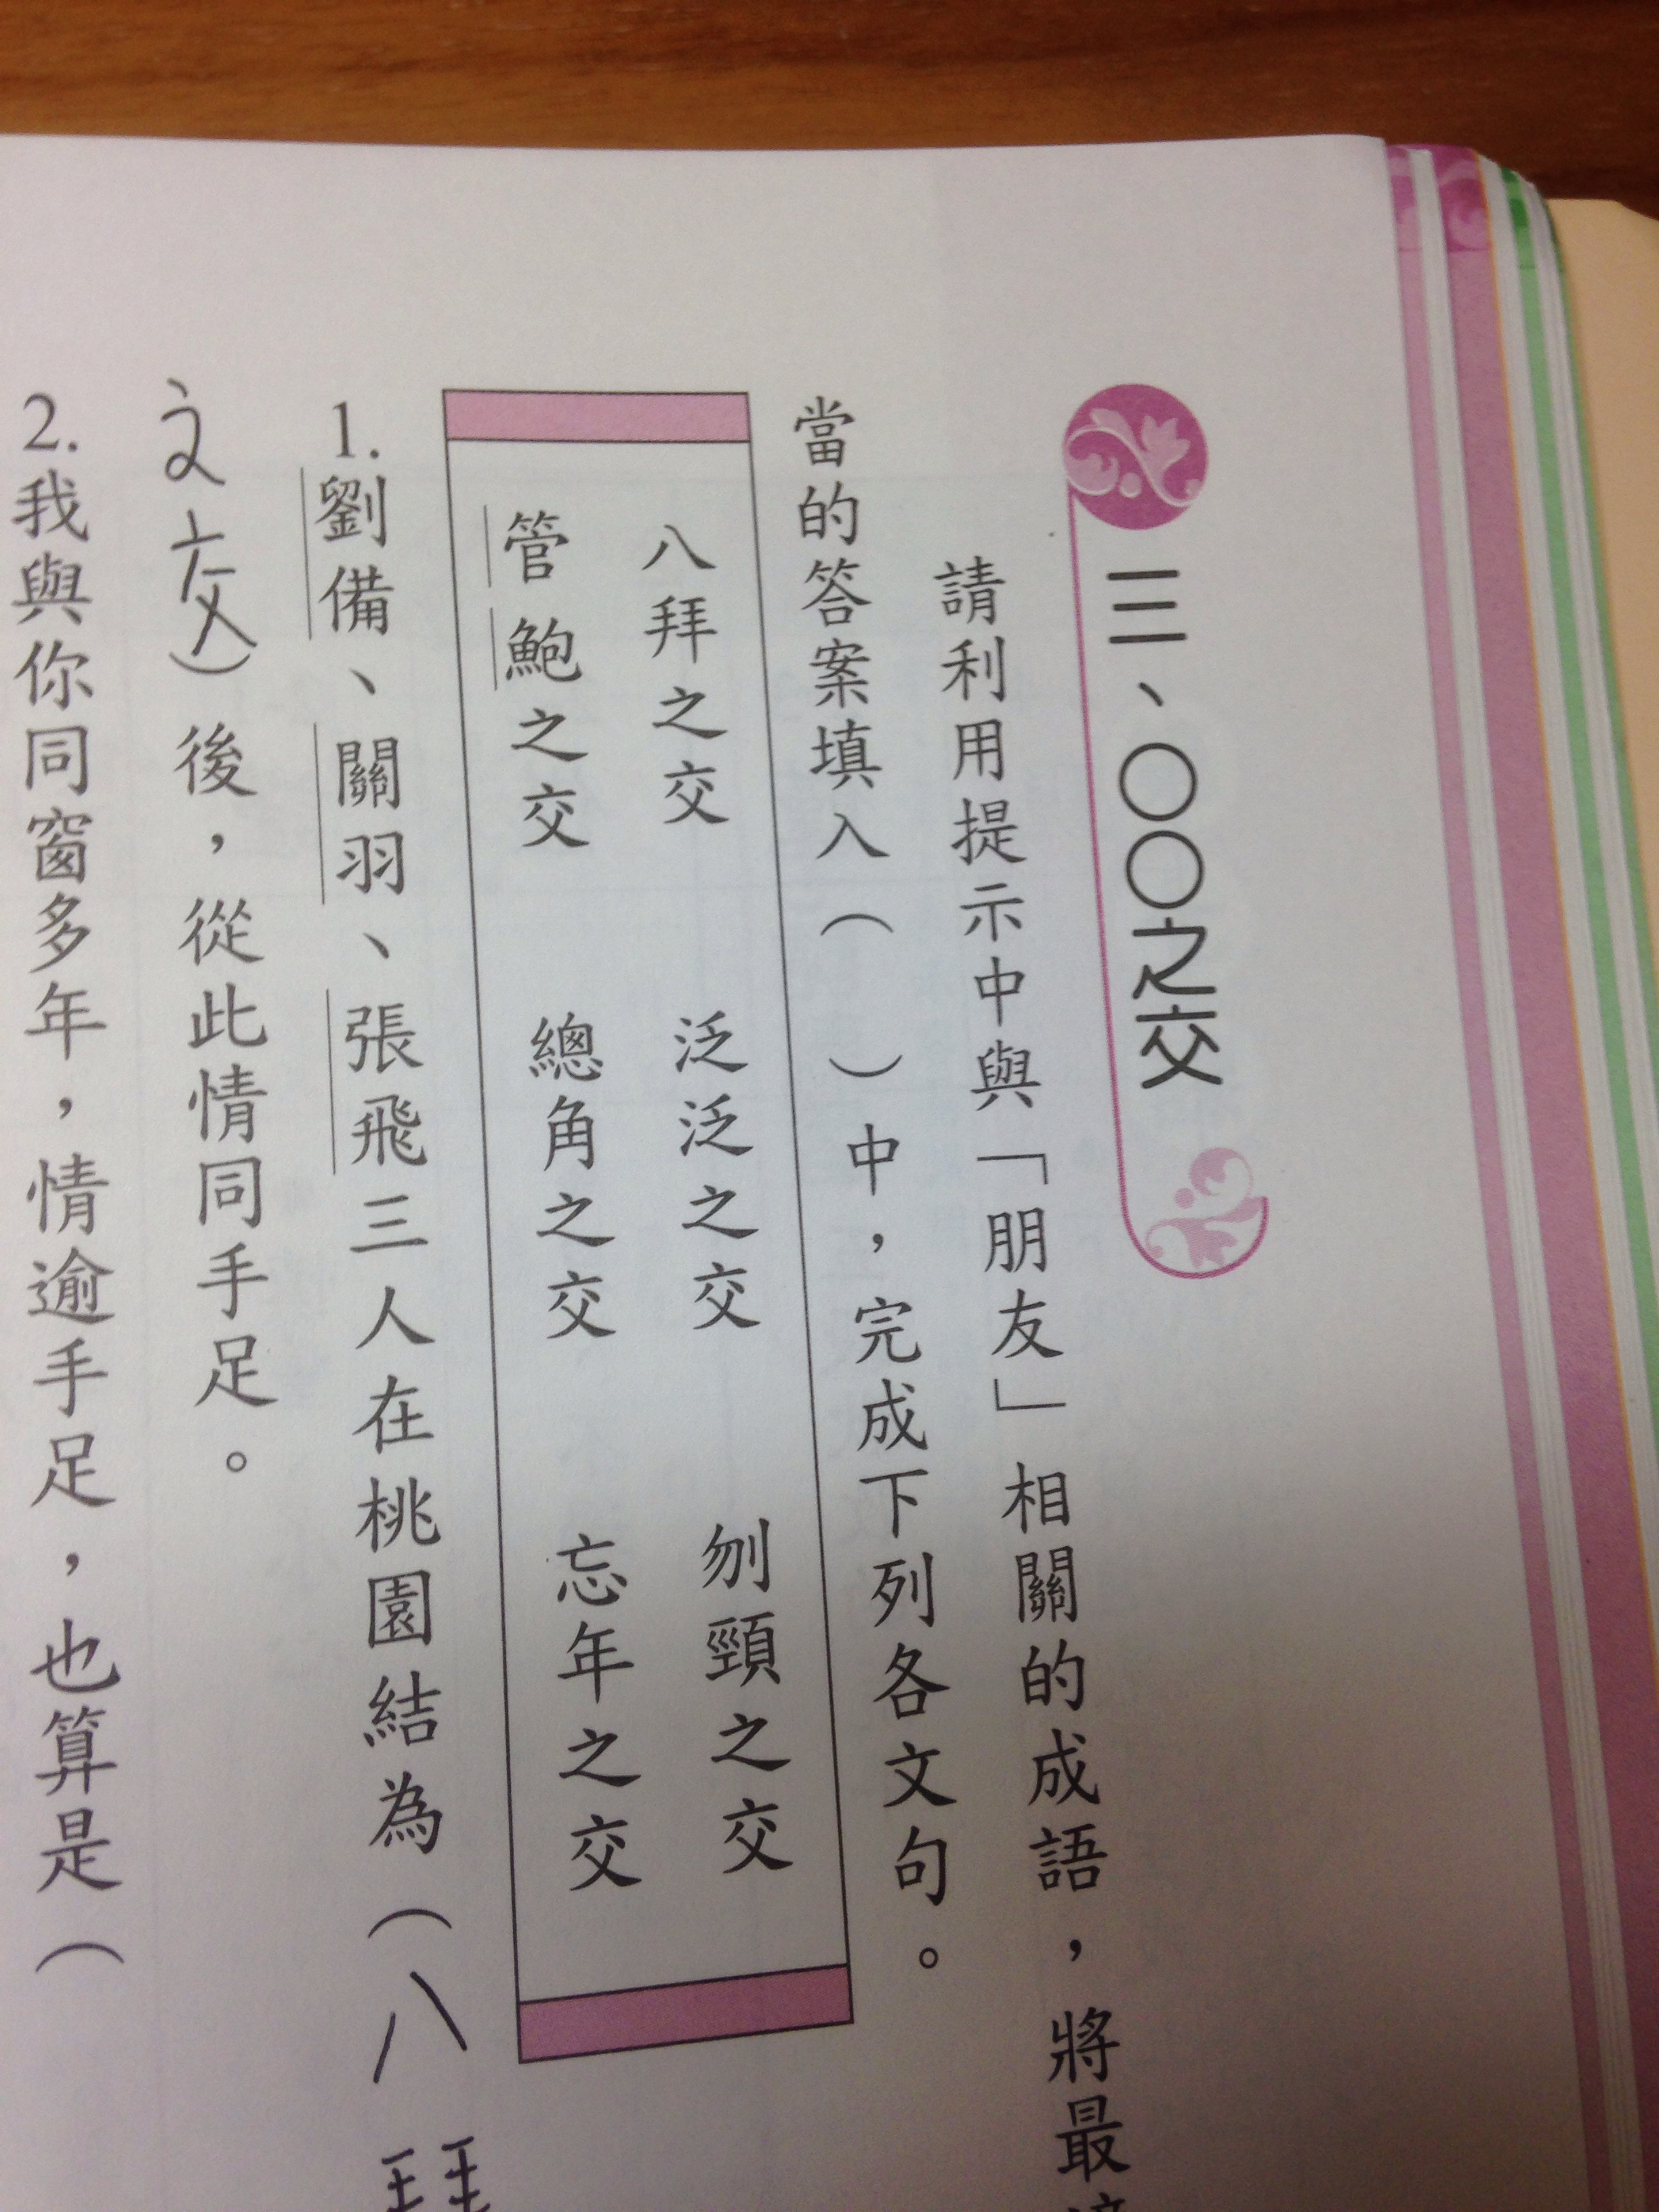 三、〇〇之交
請利用提示中與「朋友」相關的成語，將最
當的答案填入（　）中，完成下列各文句。
八拜之交　泛泛之交　刎頸之交
管鮑之交　總角之交　忘年之交
1.劉備、關羽、張飛三人在桃園結為（八拜
之交）後，從此情同手足。
2.我與你同窗多年，情逾手足，也算是（